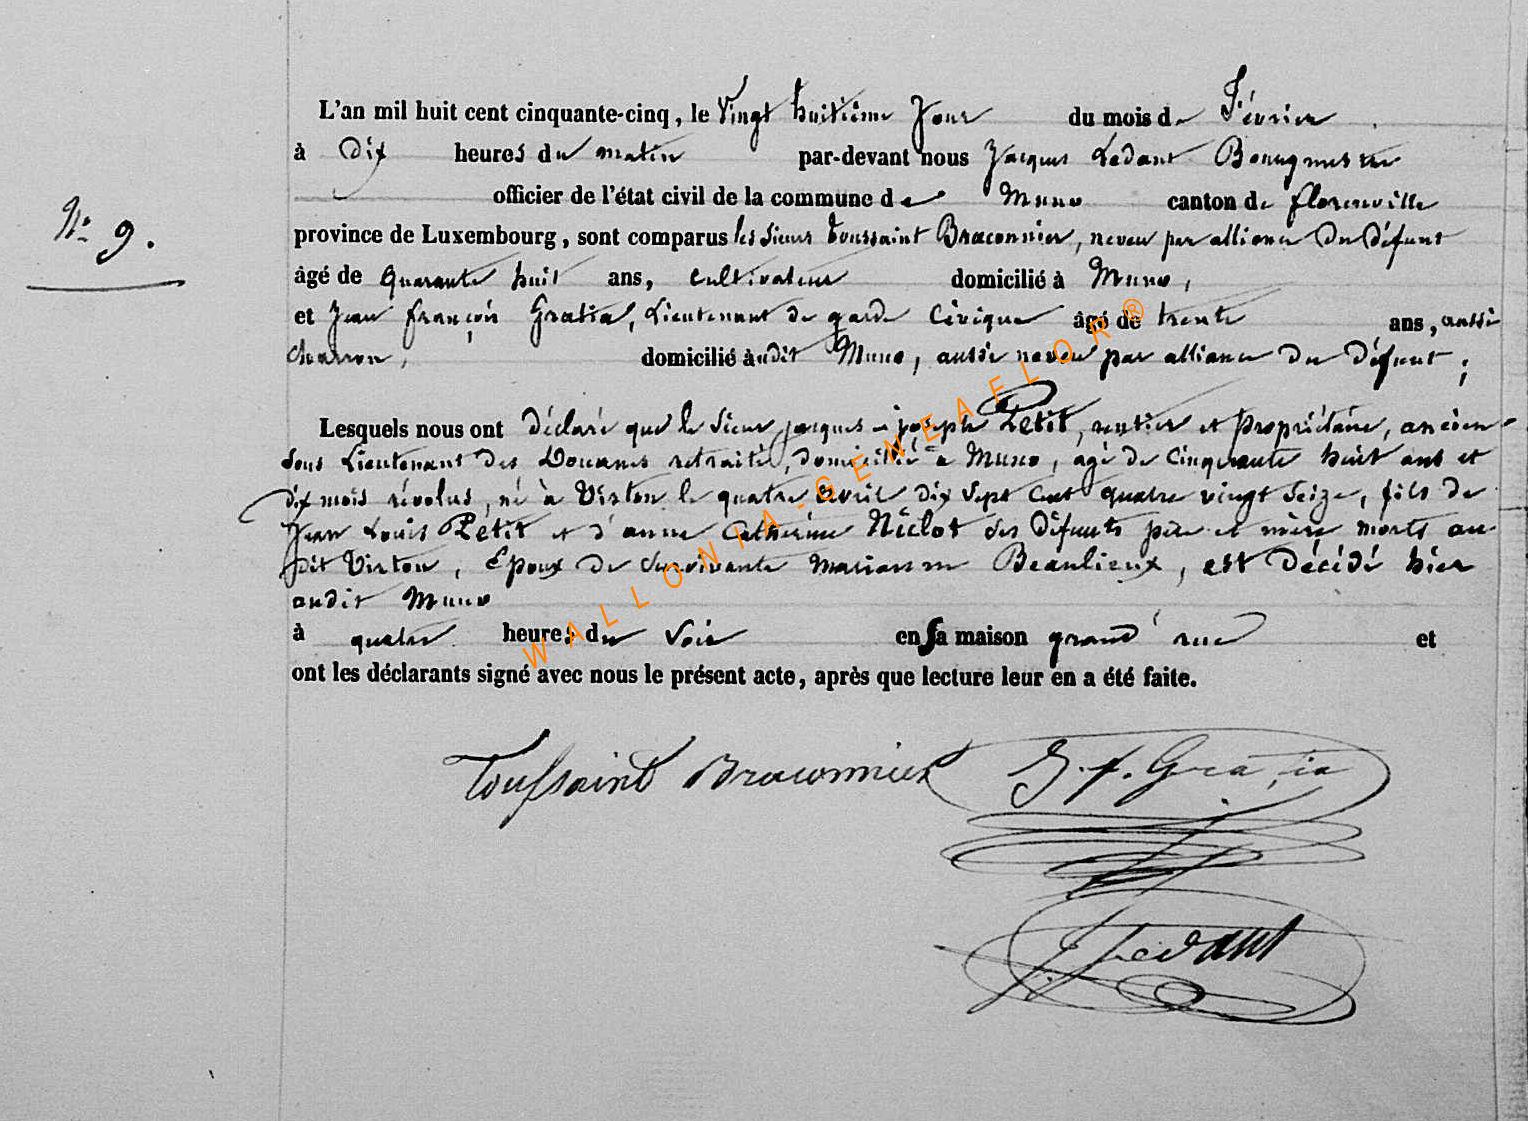 L'an mil huit cent cinquante-cinq, le Vingt huitième Jour du mois de Février
à Dix heures du matin par-devant nous Jacques Ledant Bourgmestre
officier de l'état civil de la commune de Muno canton de florenville
province de Luxembourg, sont comparus les Sieurs Toussaint Braconnier, neveu par alliance du Défunt
N° 9.
âgé de Quarante huit ans, Cultivateur domicilié à Muno,
et Jean françois Gratia, Lieutenant de garde Civique âgé de trente ans, aussi
charron, domicilié audit Muno, aussi neveu par alliance du Défunt;
Lesquels nous ont Déclaré que le Sieur jacques joseph Petit, rentier et propriétaire, ancien
sous Lieutenant des Douanes retraité, domicilié à Muno, agé de Cinquante huit ans et
dix mois révolus, né à Virton le quatre avril dix Sept Cent quatre vingt Seize, fils de
Jean Louis Petit et d'anne Catherine Niclot ses Défunts père et mère morts au
dit Virton, Epoux de Survivante Marianne Beaulieux, est Décédé hier
audit Muno
à quatre heures du Soir en Sa maison grand' rue et
ont les déclarants signé avec nous le présent acte, après que lecture leur en a été faite.
Toussaint Braconnier J. f. Gratia
J. Ledant
WALLONIA-GENEAFLOR®